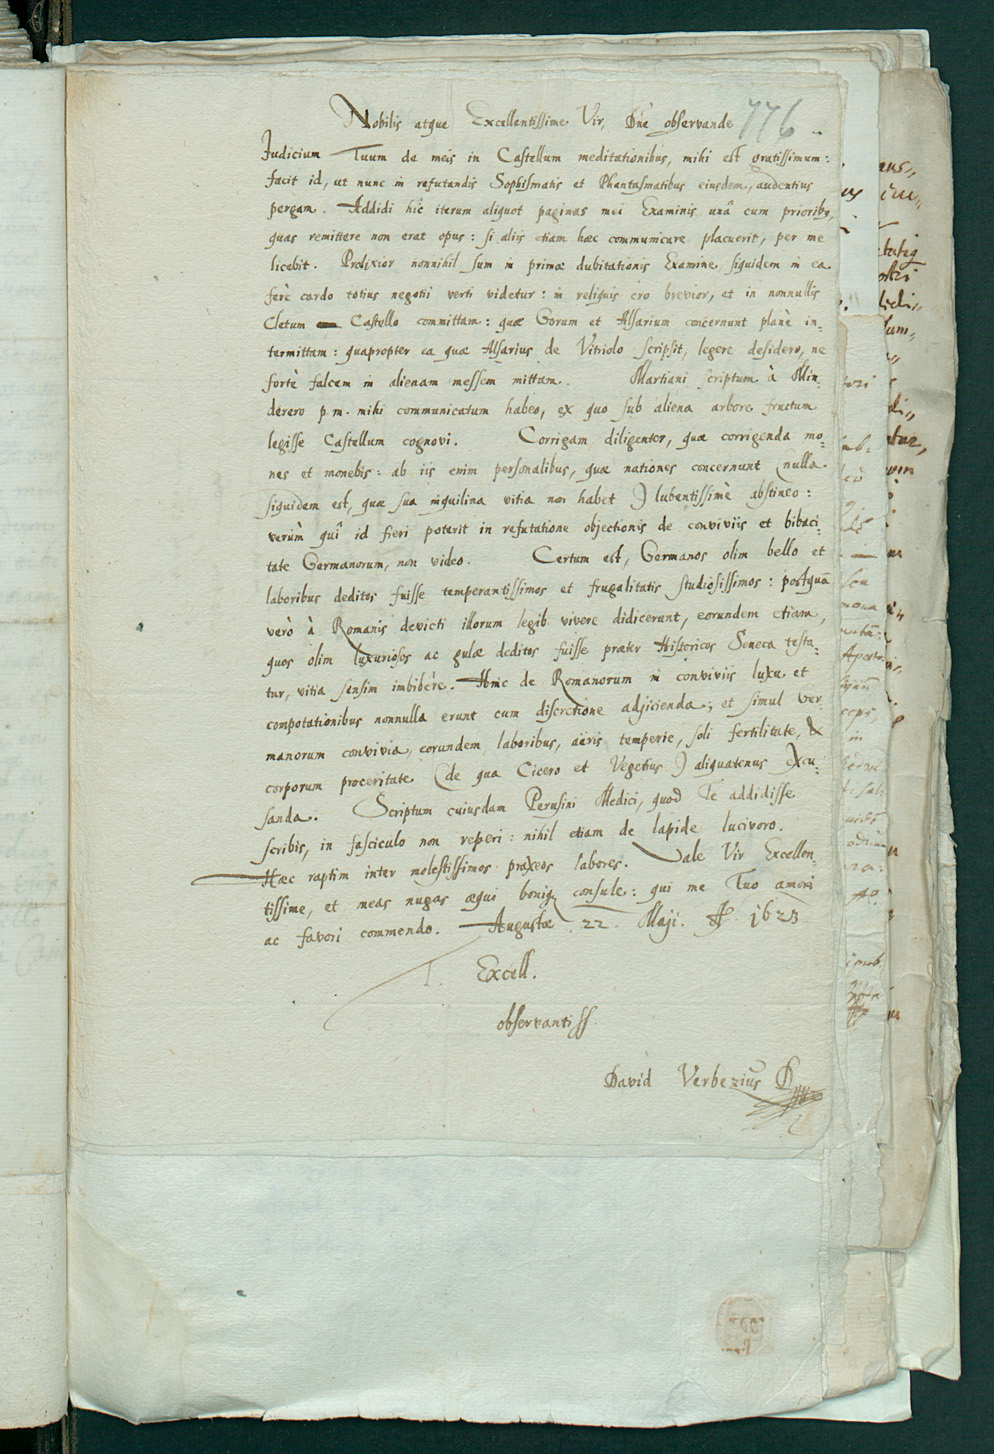 776
Nobilis atque Excellentissime Vir, Dñe observande
Judicium Tuum de meis in Castellum meditationibus, mihi est gratissimum:
facit id, ut nunc in refutandis Sophismatis et Phantasmatibus eiusdem, audentius
pergam. Addidi hic iterum aliquot paginas mei Examinis unâ cum prioribꝰ,
quas remittere non erat opus: si aliis etiam hæc communicare placuerit, per me
licebit. Prolixior nonnihil sum in primæ dubitationis Examine, siquidem in ea
ferè cardo totius negotii verti videtur: in reliquis ero brevior, et in nonnullis
Cletum Castello committam: quæ Gorum et Alsarium concernunt planè in-
termittam: quapropter ea quæ Alsarius de Vitriolo scripsit, legere desidero, ne
fortè falcem in alienam messem mittam. Martiani scriptum à Min-
derero p.m. mihi communicatum habeo, ex quo sub aliena arbore fructum
legisse Castellum cognovi. Corrigam diligenter, quæ corrigenda mo-
nes et monebis: ab iis enim personalibus, quæ nationes concernunt (nulla
siquidem est, quæ sua inquilina vitia non habet) lubentissimè abstineo:
verùm quî id fieri poterit in refutatione objectionis de conviviis et bibaci-
tate Germanorum, non video. Certum est, Germanos olim bello et
laboribus deditos fuisse temperantissimos et frugalitatis studiosissimos: postquã
verò à Romanis devicti illorum legib. vivere didicerunt, eorundem etiam,
quos olim luxuriosos ac gulæ deditos fuisse præter Historicos Seneca testa-
tur, vitia sensim imbibêre. Hinc de Romanorum in conviviis luxu et
compotationibus nonnulla erunt cum discretione adjicienda; et simul Ger-
manorum convivia, eorundem laboribus, aëris temperie, soli fertilitate, &
corporum proceritate (de qua Cicero et Vegetius) aliquatenus excu-
sanda. Scriptum cuiusdam Perusini Medici, quod Te addidisse
scribis, in fasciculo non reperi: nihil etiam de lapide lucivoro.
Hæc raptim inter molestissimos praxeos labores. Vale Vir Excellen-
tissime, et meas nugas æqui boniq; consule: qui me Tuo amori
ac favori commendo. Augustæ 22. Maji. Aº. 1623
T. Excell.
observantiss
David Verbezius D